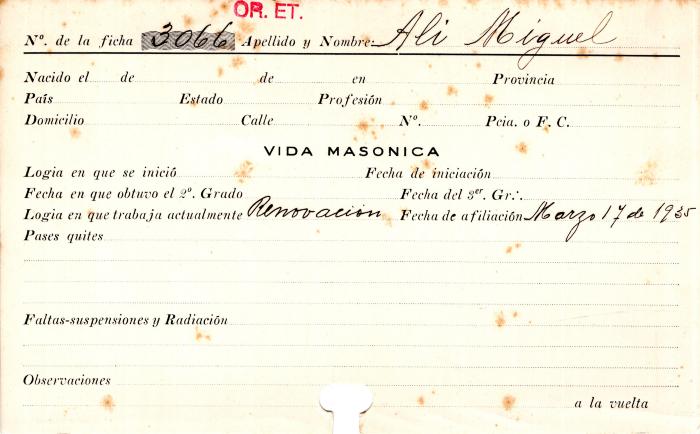 OR. ET.
Nº. de la ficha 3066 Apellido y Nombre: Ali Miguel
Nacido el de de en Provincia
País Estado Profesión
Domicilio Calle Nº. Pcia. o F. C.
VIDA MASONICA
Logia en que se inició Fecha de iniciación
Fecha en que obtuvo el 2º. Grado Fecha del 3er. Gr∴
Logia en que trabaja actualmente Renovación Fecha de afiliación Marzo 17 de 1935
Pases quites
Faltas-suspensiones y Radiación
Observaciones
a la vuelta